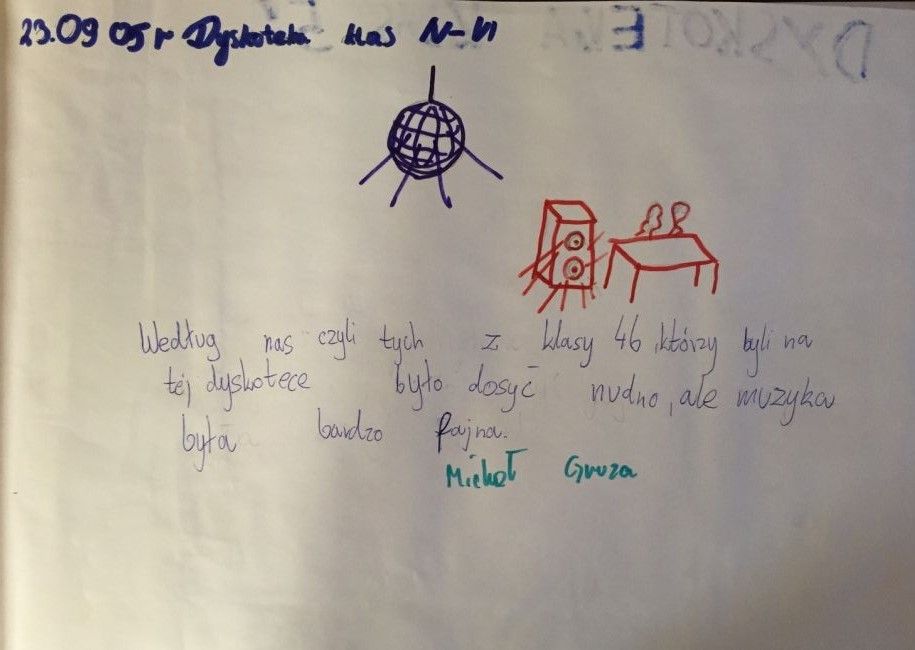 23.09 05 r Dyskoteka klas IV-VI
Według nas czyli tych z klasy 4b, którzy byli na
tej dyskotece było dosyć nudno, ale muzyka
była bardzo fajna.
Michał Gruza